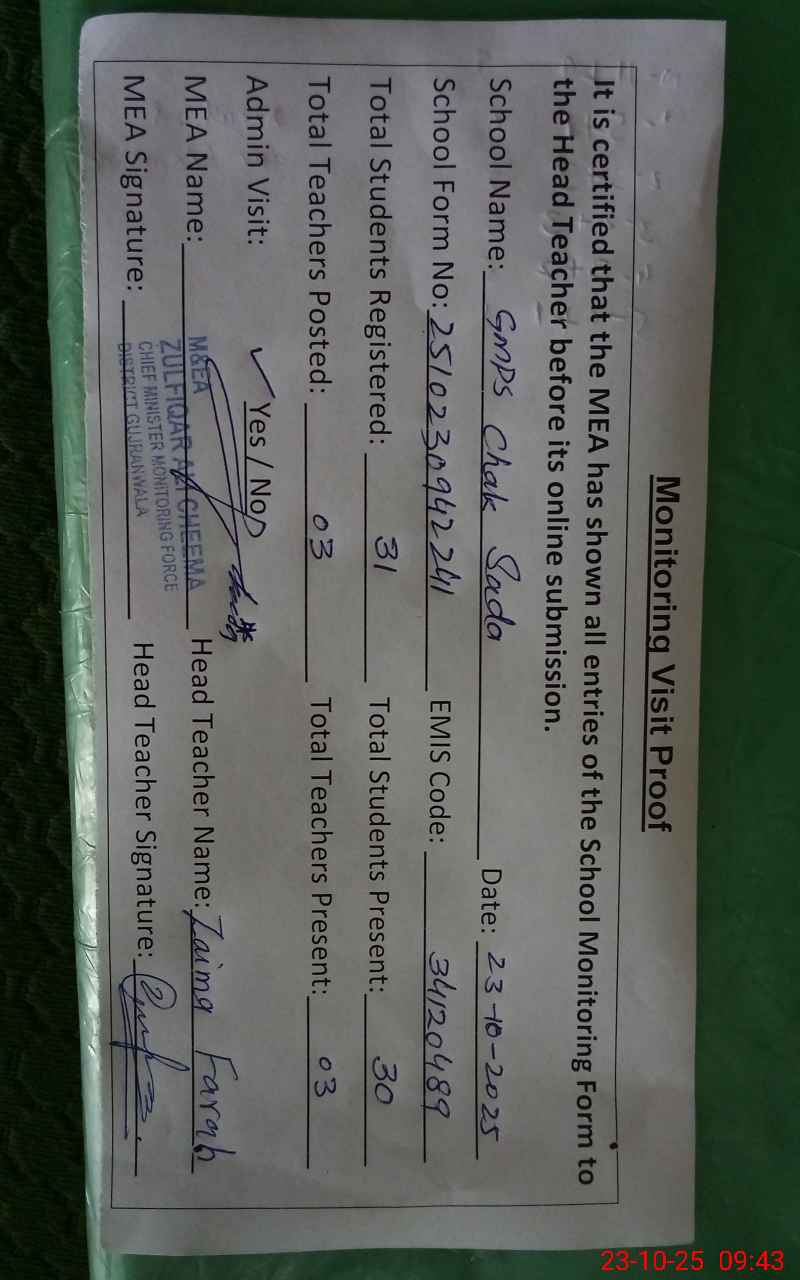 Monitoring Visit Proof
It is certified that the MEA has shown all entries of the School Monitoring Form to
the Head Teacher before its online submission.
School Name: GMPS Chak Sada Date: 23-10-2025
School Form No: 2510230942241 EMIS Code: 34120489
Total Students Registered: 31 Total Students Present: 30
Total Teachers Posted: 03 Total Teachers Present: 03
Admin Visit: ✓ Yes / No
MEA Name: M&EA Head Teacher Name: Zaima Farah
ZULFIQAR ALI CHEEMA
CHIEF MINISTER MONITORING FORCE
DISTRICT GUJRANWALA
MEA Signature: Head Teacher Signature:
23-10-25 09:43